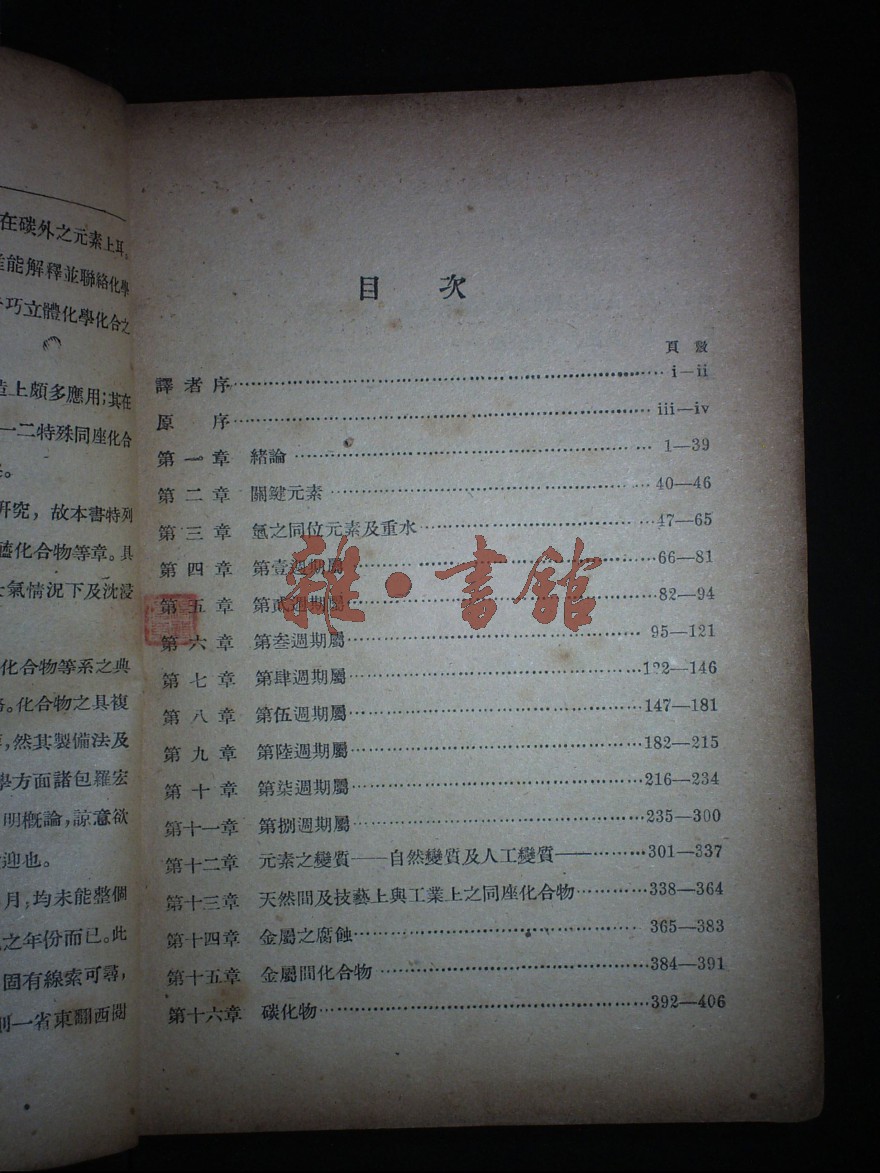 在碳外之元素上耳。
能解釋並聯絡化學
巧立體化學化合之
上頗多應用;其在
一二特殊同座化合
研究,故本書特列
化合物等章。具
氣情況下及沈浸
化合物等系之典
。化合物之具複
,然其製備法及
學方面諸包羅宏
明概論,諒意欲
迎也。
月,均未能整個
之年份而已。此
固有線索可尋,
一省東翻西閱
目 次
頁 數
譯者序 i—ii
原 序 iii—iv
第一章 緒論 1—39
第二章 關鍵元素 40—46
第三章 氫之同位元素及重水 47—65
第四章 第壹週期屬 66—81
第五章 第貳週期屬 82—94
第六章 第叁週期屬 95—121
第七章 第肆週期屬 122—146
第八章 第伍週期屬 147—181
第九章 第陸週期屬 182—215
第十章 第柒週期屬 216—234
第十一章 第捌週期屬 235—300
第十二章 元素之變質——自然變質及人工變質—— 301—337
第十三章 天然間及技藝上與工業上之同座化合物 338—364
第十四章 金屬之腐蝕 365—383
第十五章 金屬間化合物 384—391
第十六章 碳化物 392—406
雜·書館